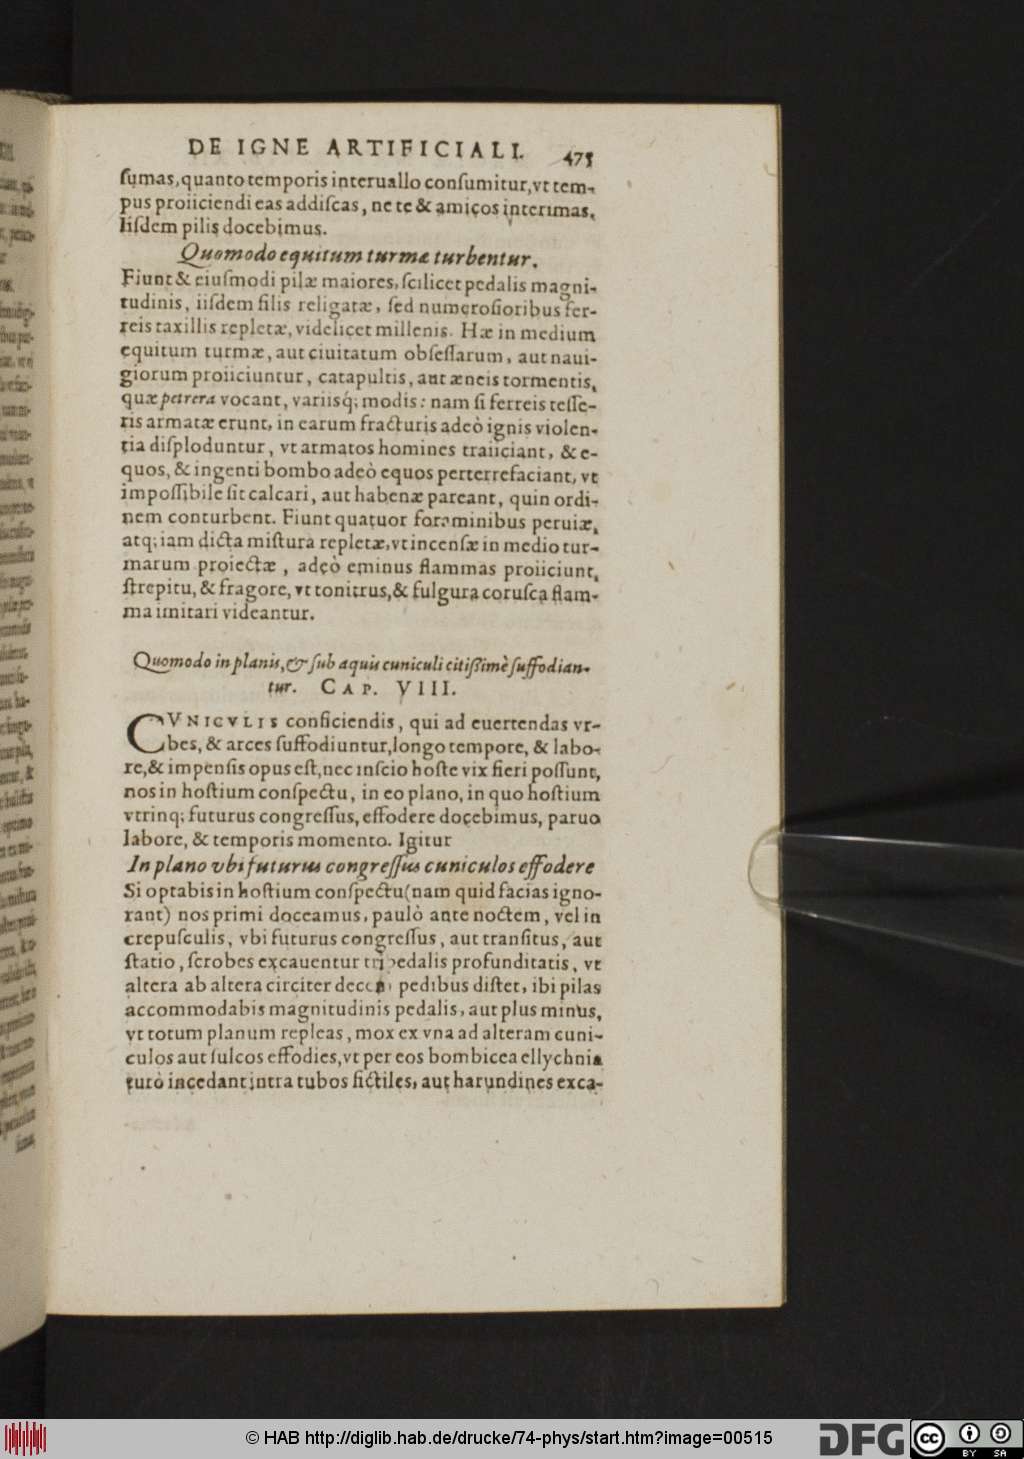 DE IGNE ARTIFICIALI. 475
ſumas, quanto temporis interuallo conſumitur, vt tem-
pus proiiciendi eas addiſcas, ne te & amicos interimas.
Iiſdem pilis docebimus.
Quomodo equitum turmæ turbentur.
Fiunt & eiuſmodi pilæ maiores, ſcilicet pedalis magni-
tudinis, iiſdem filis religatæ, ſed numeroſioribus fer-
reis taxillis repletæ, videlicet millenis. Hæ in medium
equitum turmæ, aut ciuitatum obſeſſarum, aut naui-
giorum proiiciuntur, catapultis, aut æneis tormentis,
quæ petrera vocant, variisq; modis: nam ſi ferreis teſſe-
ris armatæ erunt, in earum fracturis adeò ignis violen-
tia diſploduntur, vt armatos homines traiiciant, & e-
quos, & ingenti bombo adeò equos perterrefaciant, vt
impoſſibile ſit calcari, aut habenæ pareant, quin ordi-
nem conturbent. Fiunt quatuor foraminibus peruiæ,
atq; iam dicta miſtura repletæ, vt incenſæ in medio tur-
marum proiectæ, adeò eminus flammas proiiciunt,
ſtrepitu, & fragore, vt tonitrus, & fulgura coruſca flam-
ma imitari videantur.
Quomodo in planis, & ſub aquis cuniculi citißimè ſuffodian-
tur. CAP. VIII.
CVNICVLIS conficiendis, qui ad euertendas vr-
bes, & arces ſuffodiuntur, longo tempore, & labo-
re, & impenſis opus eſt, nec inſcio hoſte vix fieri poſſunt,
nos in hoſtium conſpectu, in eo plano, in quo hoſtium
vtrinq; futurus congreſſus, effodere docebimus, paruo
labore, & temporis momento. Igitur
In plano vbi futurus congreſſus cuniculos effodere
Si optabis in hoſtium conſpectu (nam quid facias igno-
rant) nos primi doceamus, paulò ante noctem, vel in
crepuſculis, vbi futurus congreſſus, aut tranſitus, aut
ſtatio, ſcrobes excauentur tripedalis profunditatis, vt
altera ab altera circiter decem pedibus diſtet, ibi pilas
accommodabis magnitudinis pedalis, aut plus minus,
vt totum planum repleas, mox ex vna ad alteram cuni-
culos aut ſulcos effodies, vt per eos bombicea ellychnia
tutò incedant intra tubos fictiles, aut harundines exca-
© HAB http://diglib.hab.de/drucke/74-phys/start.htm?image=00515
DFG
cc
BY SA